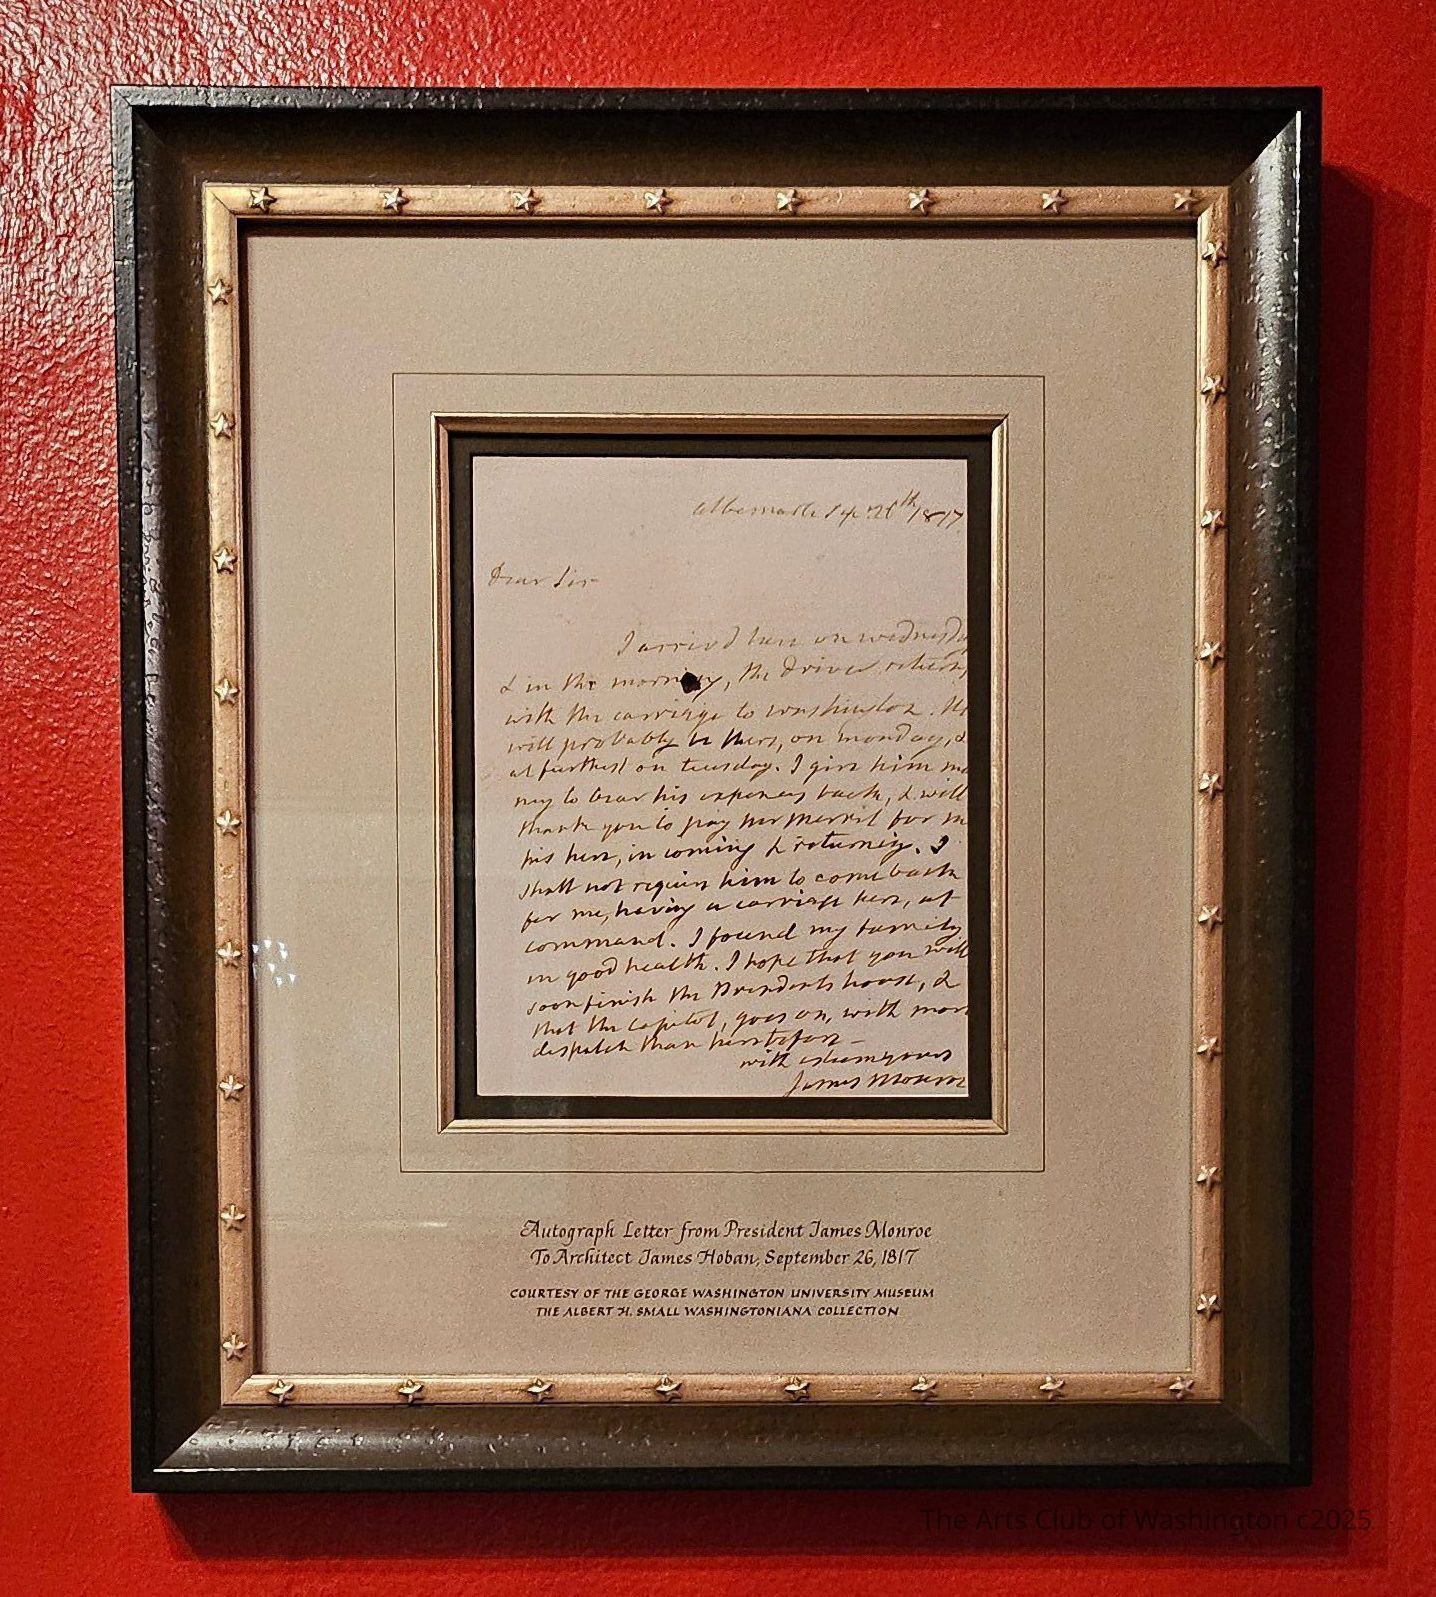 Albemarle Sep 26th 1817
Dear Sir
I arrivd here on wednesday
& in the morning, the driver returns,
with the carriage to washington. He
will probably be there, on monday, &
at furthest on tuesday. I give him mo
ney to bear his expences back, & will
thank you to pay Mr Merril for me
his hire, in coming & returning. I
shall not require him to come back
for me, having a carriage here, at
command. I found my family
in good health. I hope that you will
soon finish the Presidents house, &
that the capitol, goes on, with more
despatch than heretofore —
with esteem yours
James Monroe
Autograph Letter from President James Monroe
To Architect James Hoban, September 26, 1817
COURTESY OF THE GEORGE WASHINGTON UNIVERSITY MUSEUM
THE ALBERT H. SMALL WASHINGTONIANA COLLECTION
The Arts Club of Washington c2025